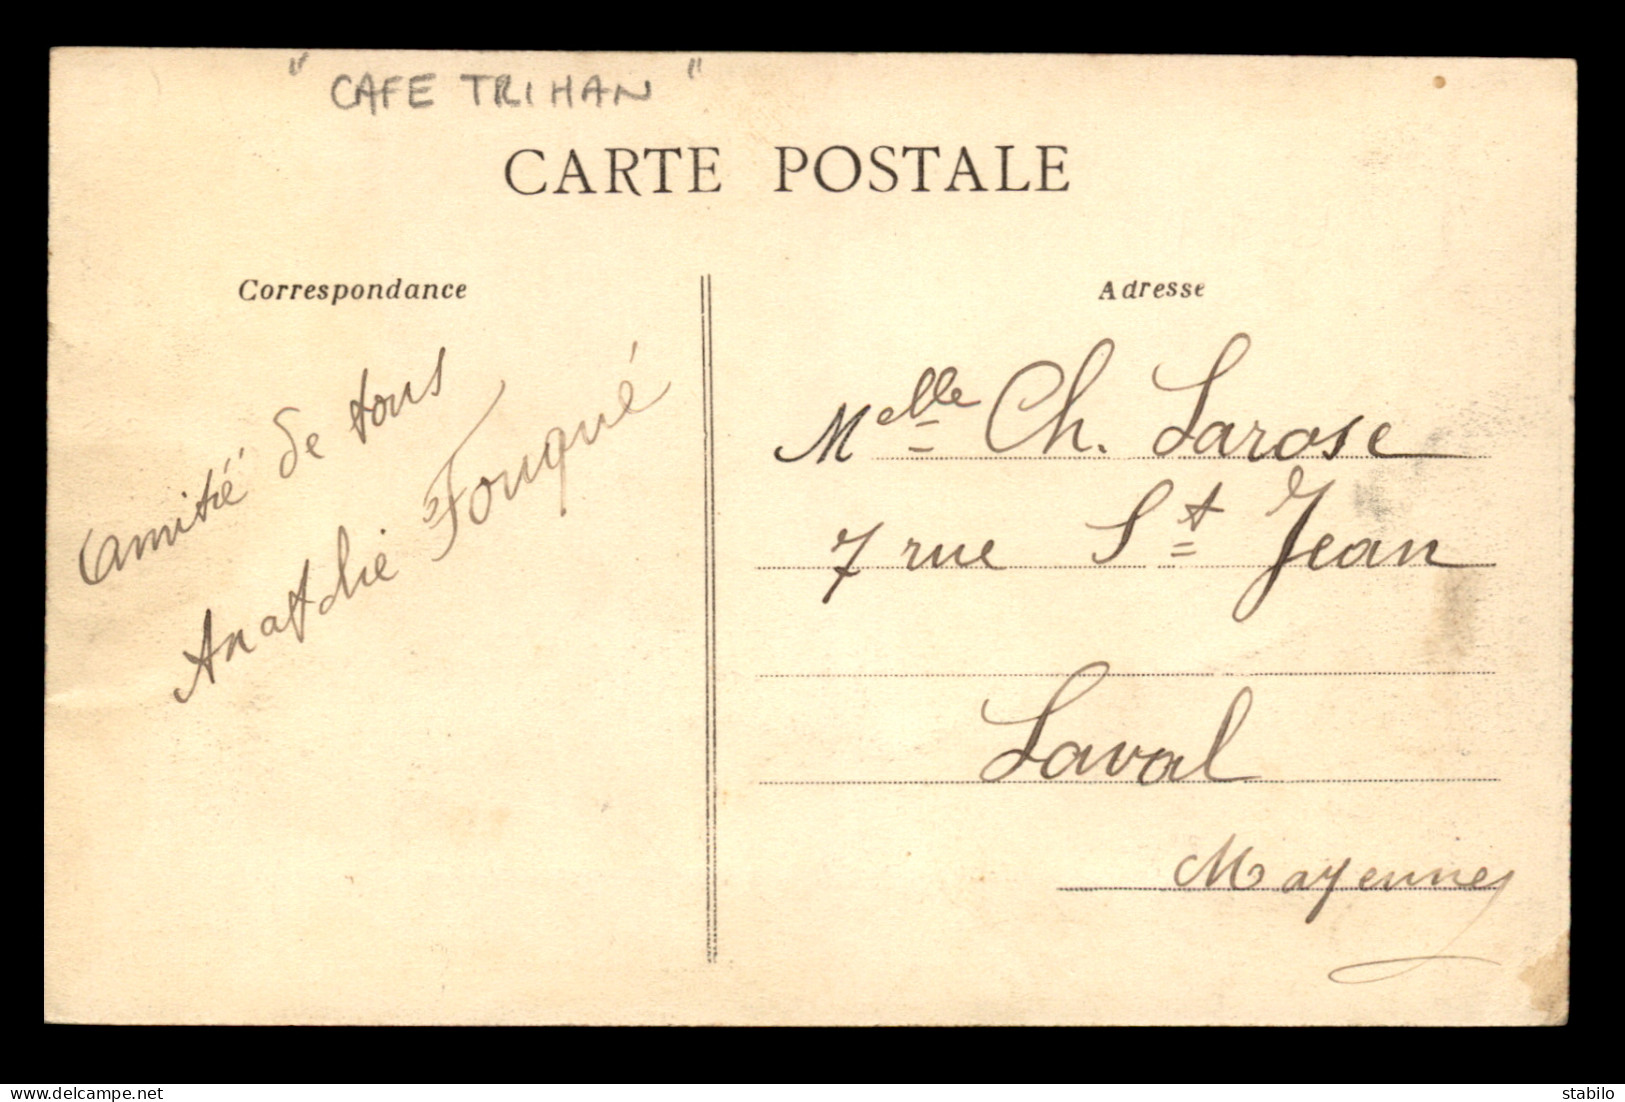 " CAFE TRIHAN "
CARTE POSTALE
Correspondance
Amitié de tous
Anathalie Fouqué
Adresse
Melle Ch. Larose
7 rue St Jean
Laval
Mayenne
stabilo